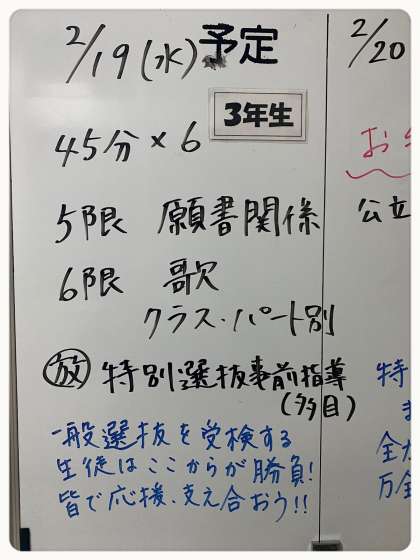 2/19(水)予定
3年生
45分×6
5限 願書関係
6限 歌
クラス・パート別
放 特別選抜事前指導
(多目)
一般選抜を受検する
生徒はここからが勝負!
皆で応援、支え合おう!!
2/20
お
公立
特
全
万全